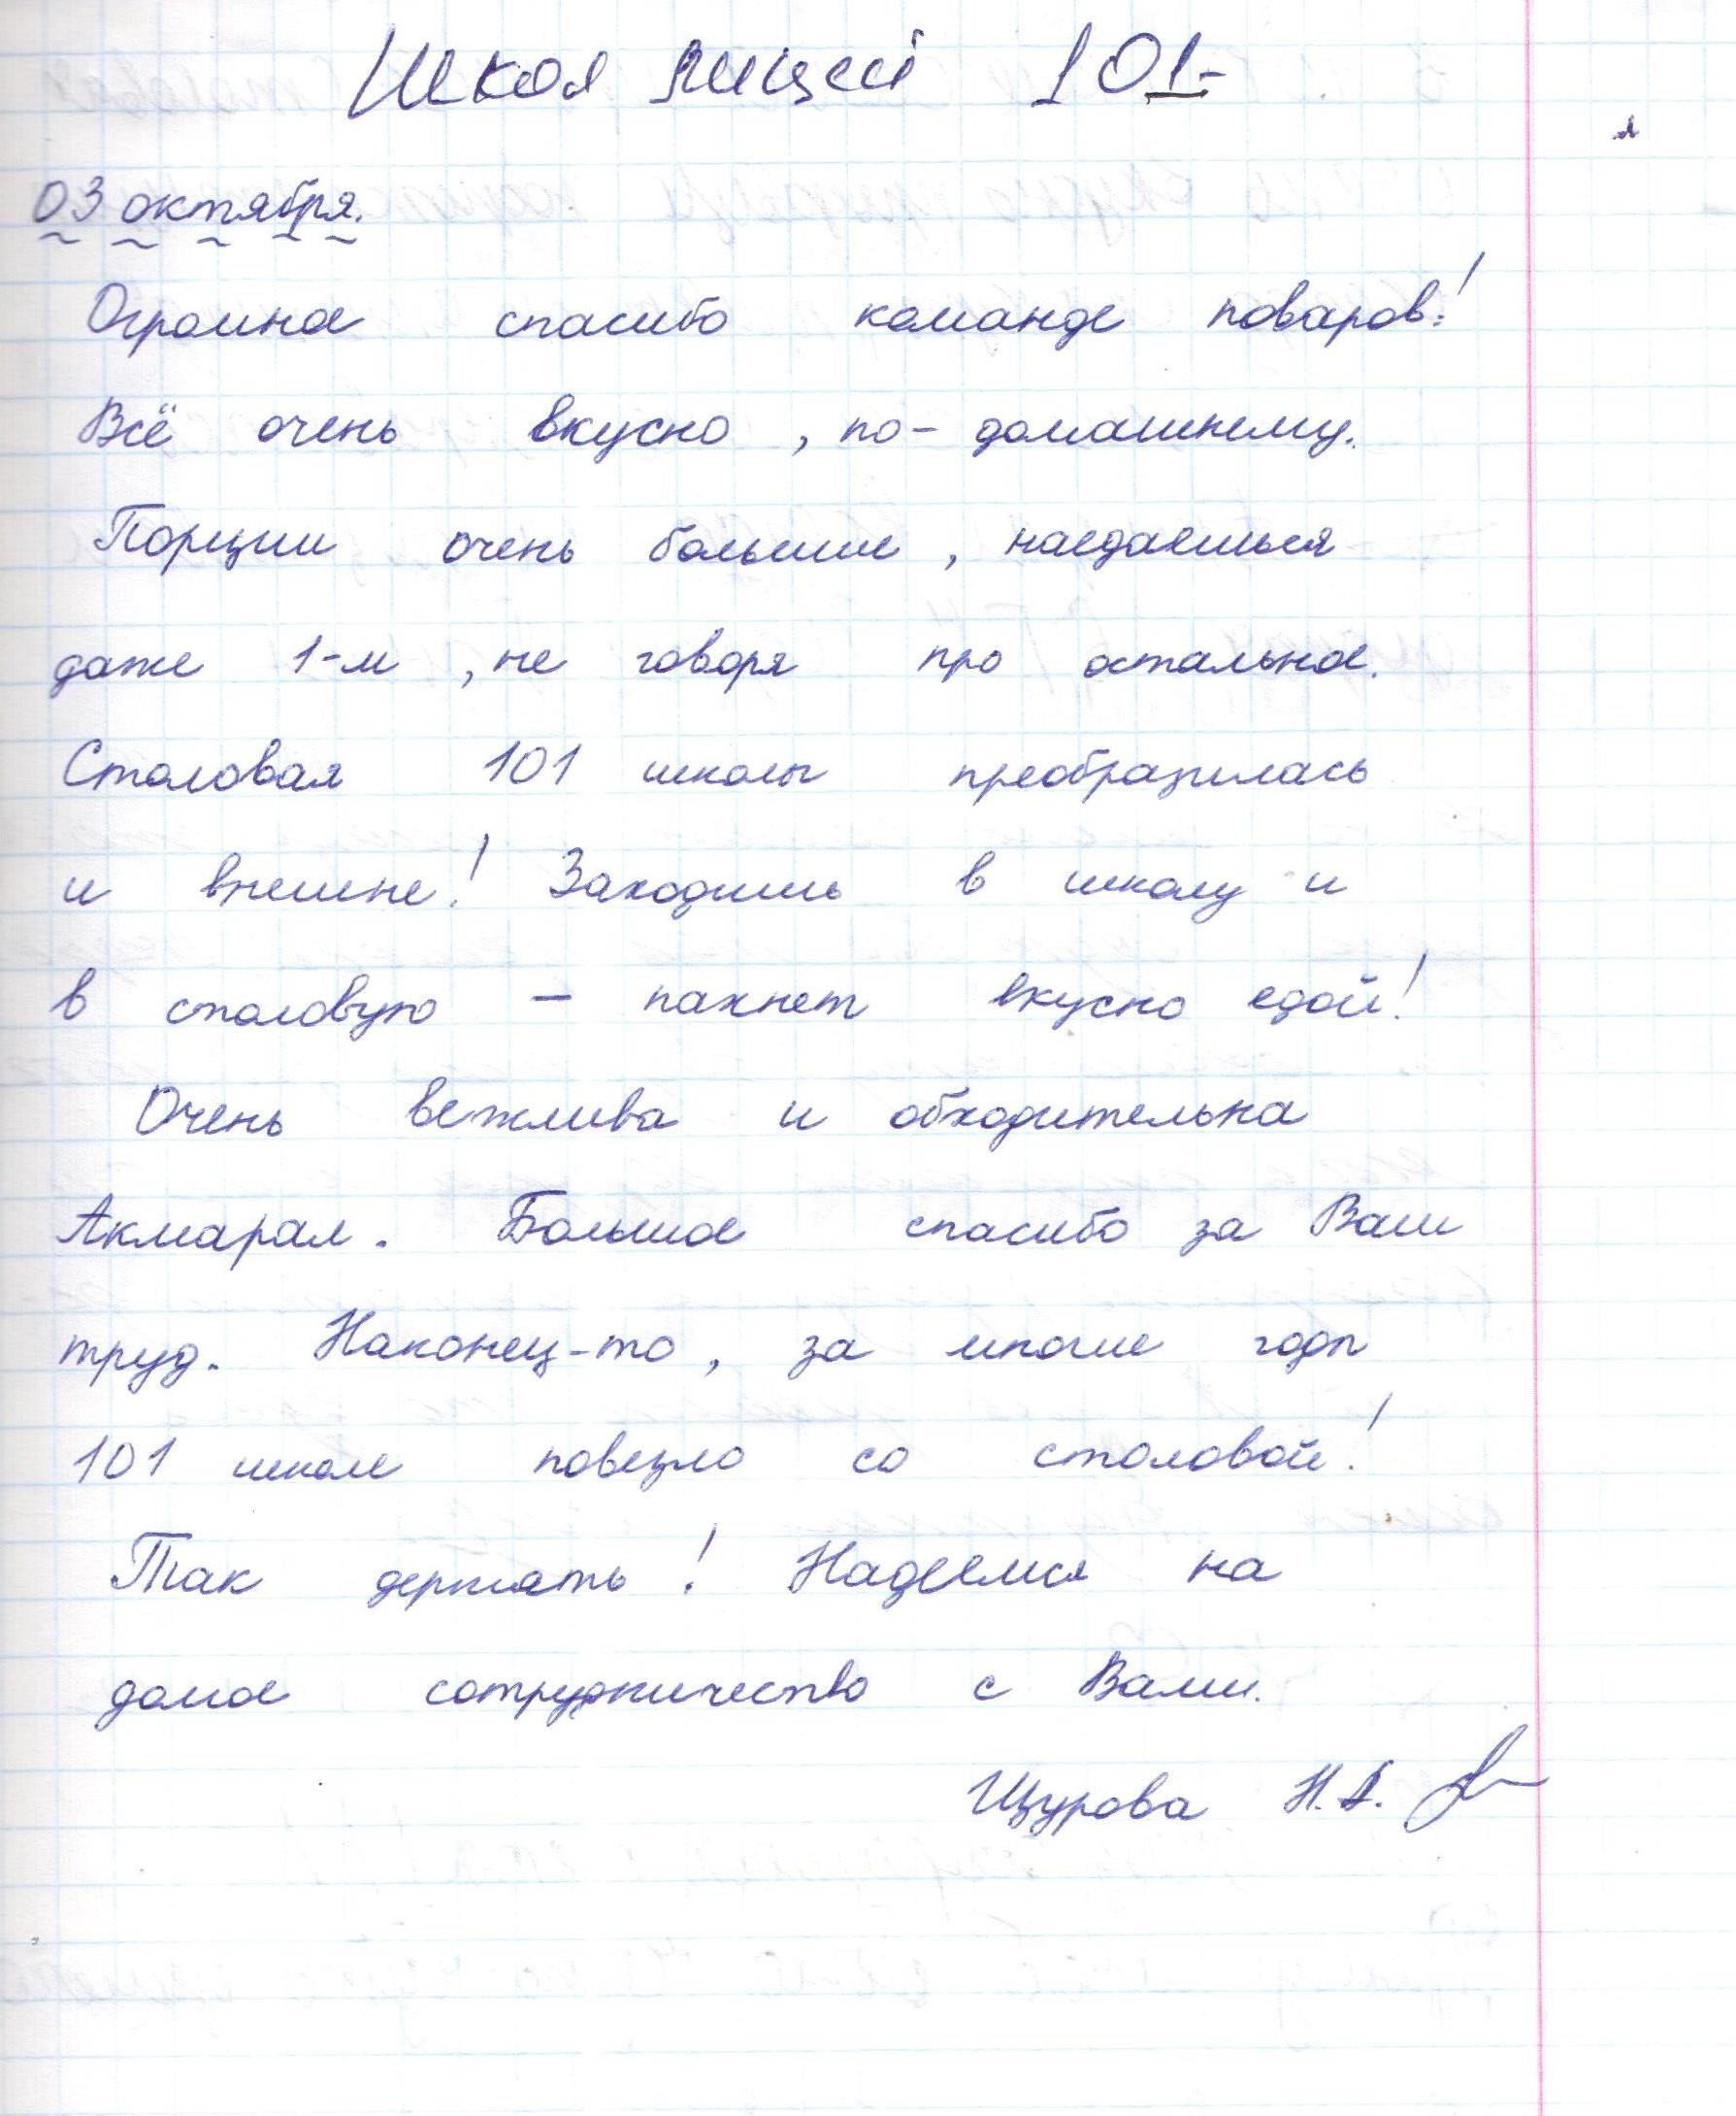 Школа лицей 101
03 октября.
Огромное спасибо команде поваров!
Всё очень вкусно, по-домашнему.
Порции очень большие, наедаешься
даже 1-м, не говоря про остальное.
Столовая 101 школы преобразилась
и внешне! Заходишь в школу и
в столовую – пахнет вкусно едой!
Очень вежлива и обходительна
Акмарал. Большое спасибо за Ваш
труд. Наконец-то, за многие годы
101 школе повезло со столовой!
Так держать! Надеемся на
долгое сотрудничество с Вами.
Щурова Н.А.